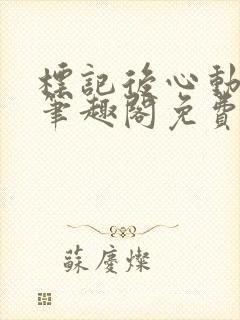 標記後心動
筆趣閣免費
蘇慶燦